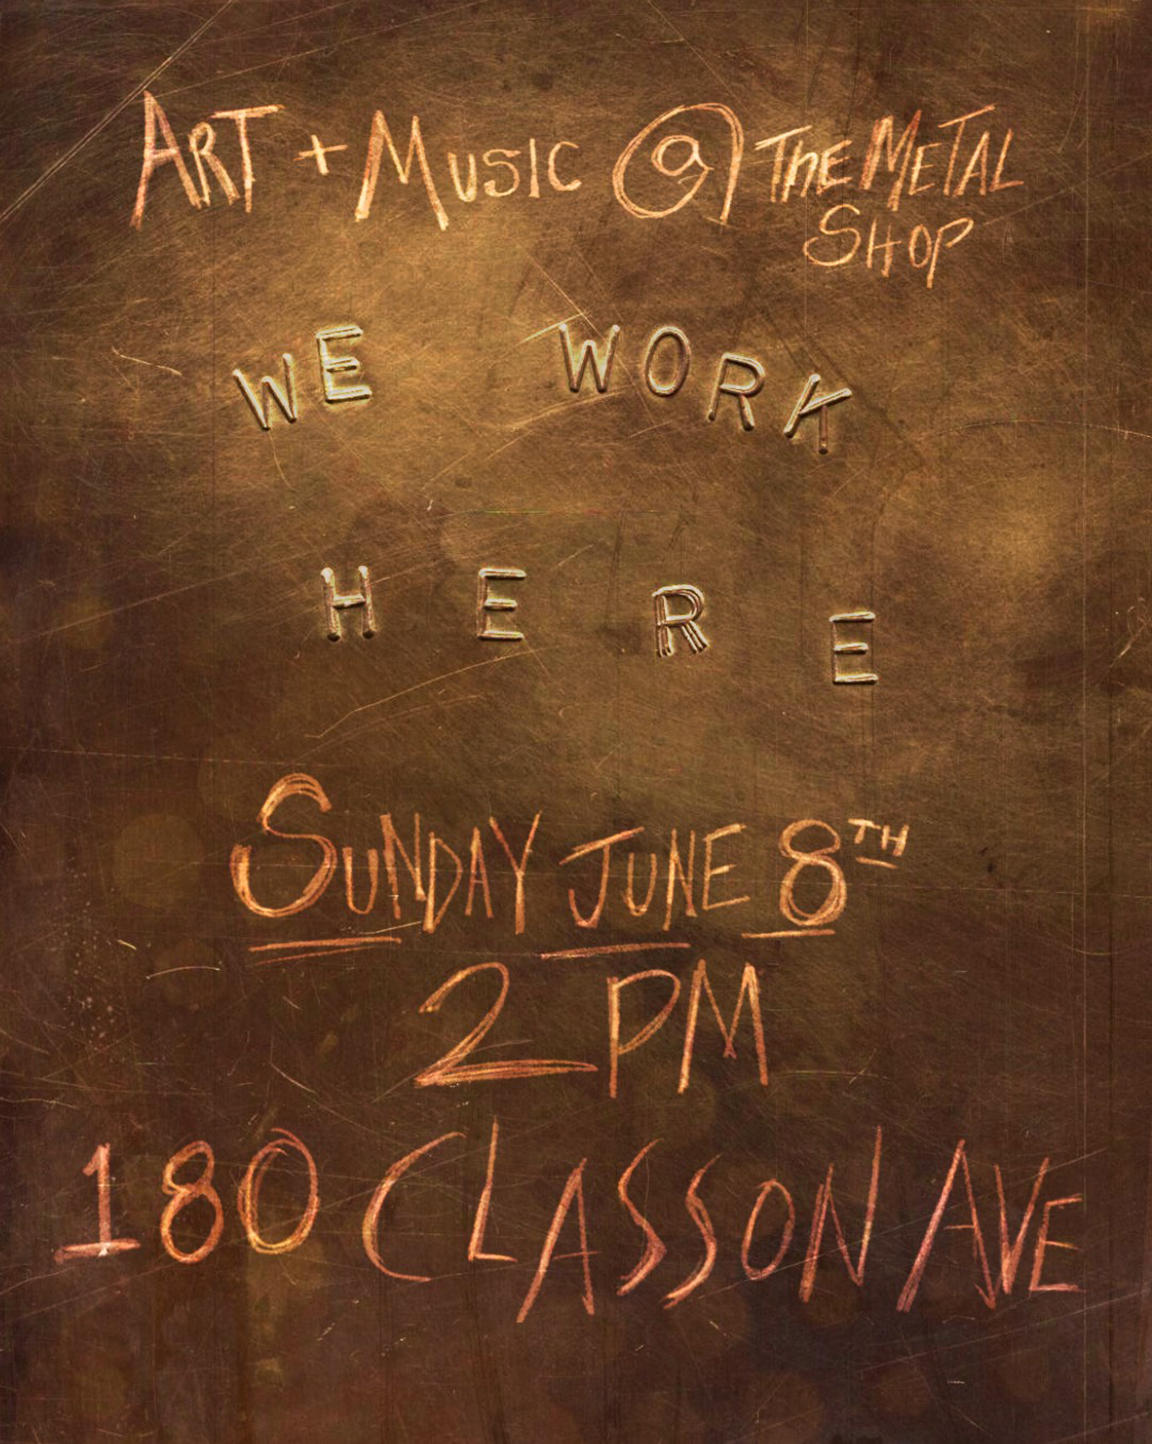 ART + MUSIC @ THE METAL
SHOP
WE WORK
HERE
SUNDAY JUNE 8TH
2 PM
180 CLASSON AVE